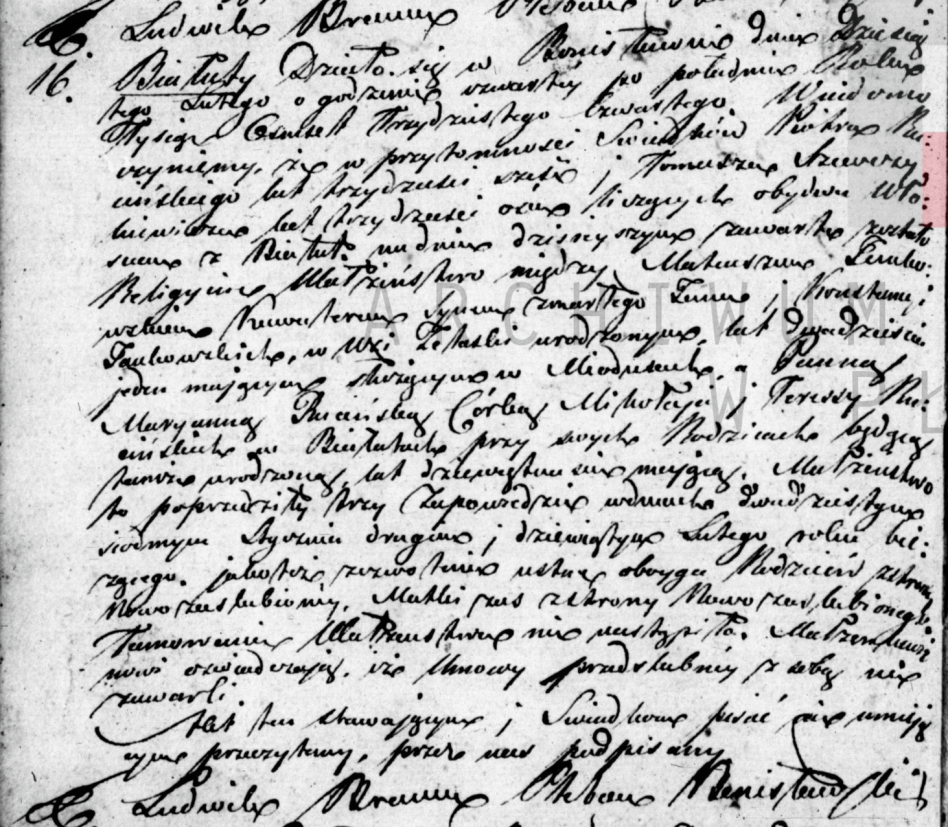 Ludwik Bremm Pleban
16. Białuty Działo się w Bonisławiu dnia Dziesią
tego Lutego o godzinie czwartey po południu Roku
Tysiąc Osmset Trzydziestego Czwartego. Wiadomo
czyniemy, iż w przytomności Swiadków Piotra Ru:
cińskiego lat trzydzieści sześć i Tomasza Szewczy
kiewicza lat trzydzieści ośm liczących obydwu Wło:
ścian z Białut na dniu dzisieyszym zawarte zostało
Religijne Małżeństwo między Mateuszem Janko:
wskim Kawalerem synem zmarłego Jana i Konstancyi
Jankowskich, w Wsi urodzonym, lat dwadzieścia
jeden mającym służącym w Mioduskach, a Panną
Maryanną Rucińską Córką Mikołaja i Teressy Ru:
cińskich w Białutach przy swych Rodzicach będącą
tamże urodzoną lat dziewiętnaście mającą. Małżeństwo
to poprzedziły trzy Zapowiedzie w dniach dwudziestym
siódmym Stycznia drugim i dziewiątym Lutego roku bie:
żącego. jakoteż zezwolenie ustne oboyga Rodziców z strony
Nowozaslubioney, Matki zas z strony Nowozaslubionego
Tamowanie Małżeństwa nie nastąpiło. Małżonkowie
nowi oswiadczają, iż Umowy przedslubney z sobą nie
zawarli.
Akt ten stawającym i Swiadkom pisać nie umieją
cym przeczytany, przez nas podpisany
Ludwik Bremm Pleban Bonisławski